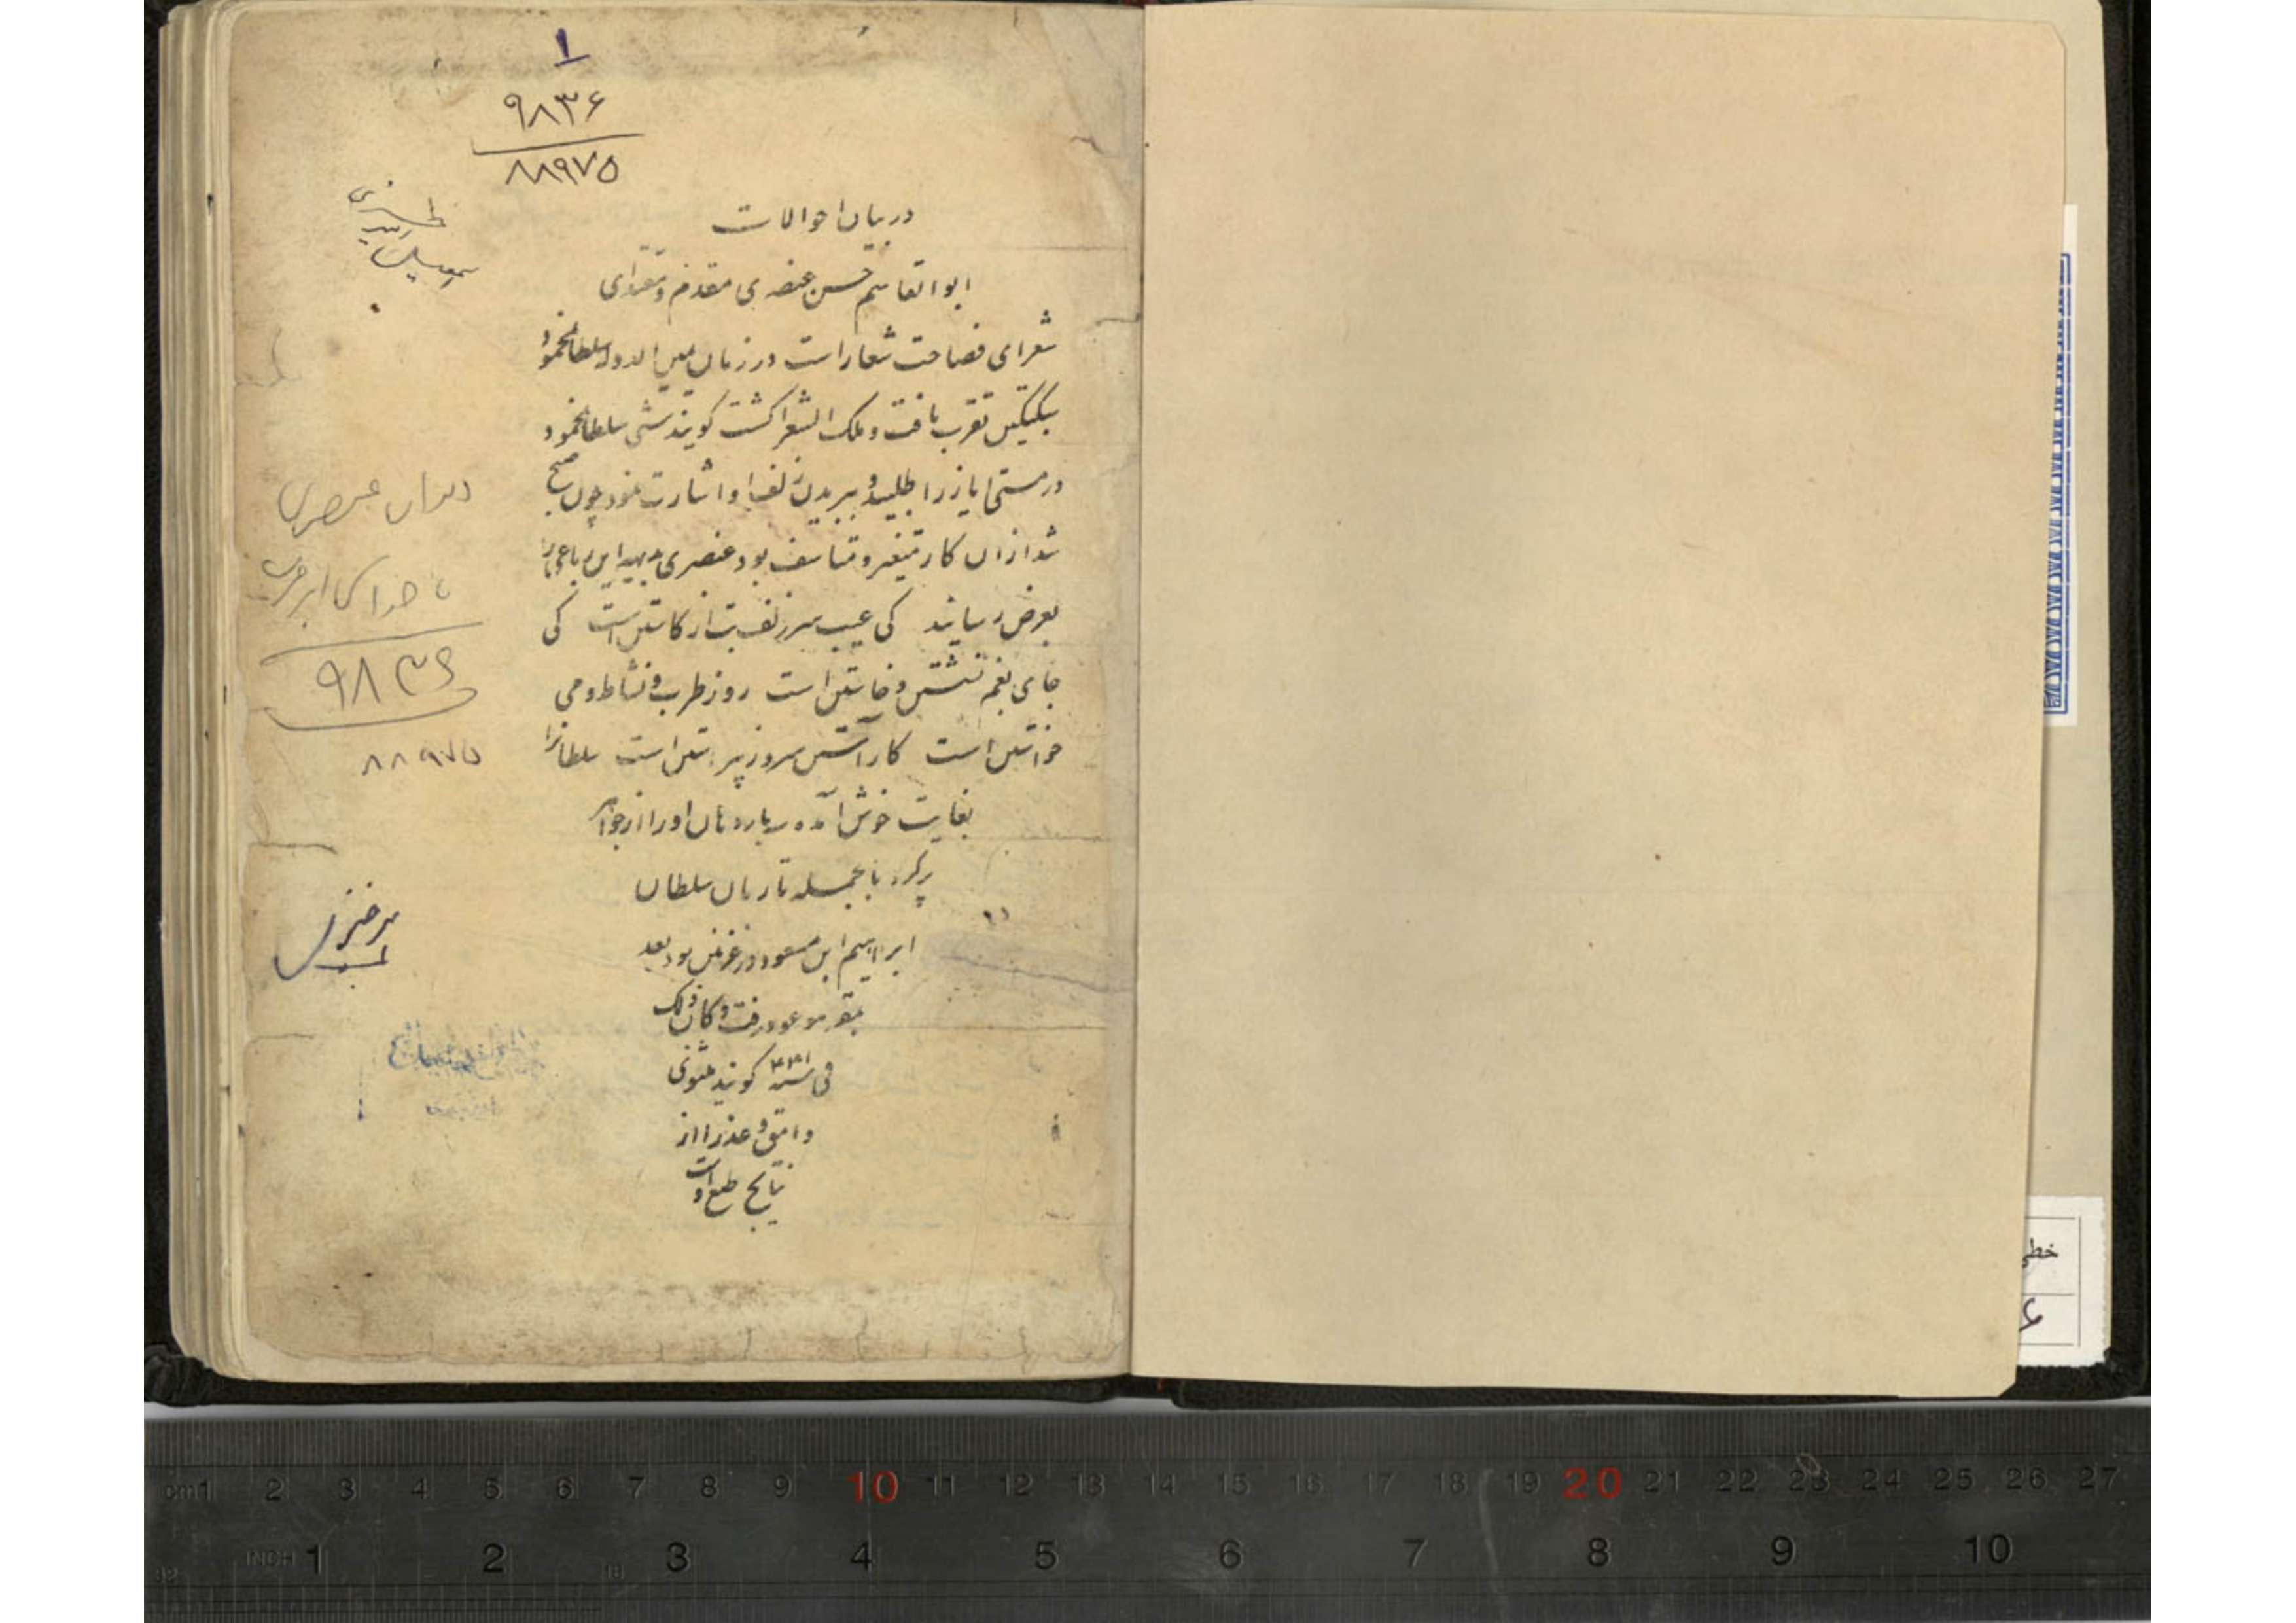 ۱
۹۸۳۶
۸۸۹۷۵
در بیان احوالات
ابوالقاسم حسن عنصری مقدم و مقتدای
شعرای فصاحت شعار است در زمان یمین الدوله سلطان محمود
سبکتکین تقرب یافت و ملک الشعرا کشت کویند شبی سلطان محمود
در مستی ایاز را طلبید و ببریدن زلف او اشارت نمود چون صبح
شد ازان کار متغیر و متاسف بود عنصری بدیهه این رباعی را
بعرض رسانید کی عیب سر زلف بت از کاستن است کی
جای بغم نشستن و خاستن است روز طرب و نشاط و می
خواستن است کاراستن سرو ز پیراستن است سلطانرا
بغایت خوش آمده سه بار دهان او را از جواهر
پر کرد بالجمله تا زمان سلطان
ابراهیم ابن مسعود در غزنین بود بعد
بمقر موعود رفت و کان ذلک
فی سنه ۴۳۱ کویند مثنوی
وامق و عذرا از
نتایج طبع اوست
دیوان عنصری
۹۸۳۶
۸۸۹۷۵
خطی
۶
cm1 2 3 4 5 6 7 8 9 10 11 12 13 14 15 16 17 18 19 20 21 22 23 24 25 26 27
INCH 1 2 3 4 5 6 7 8 9 10